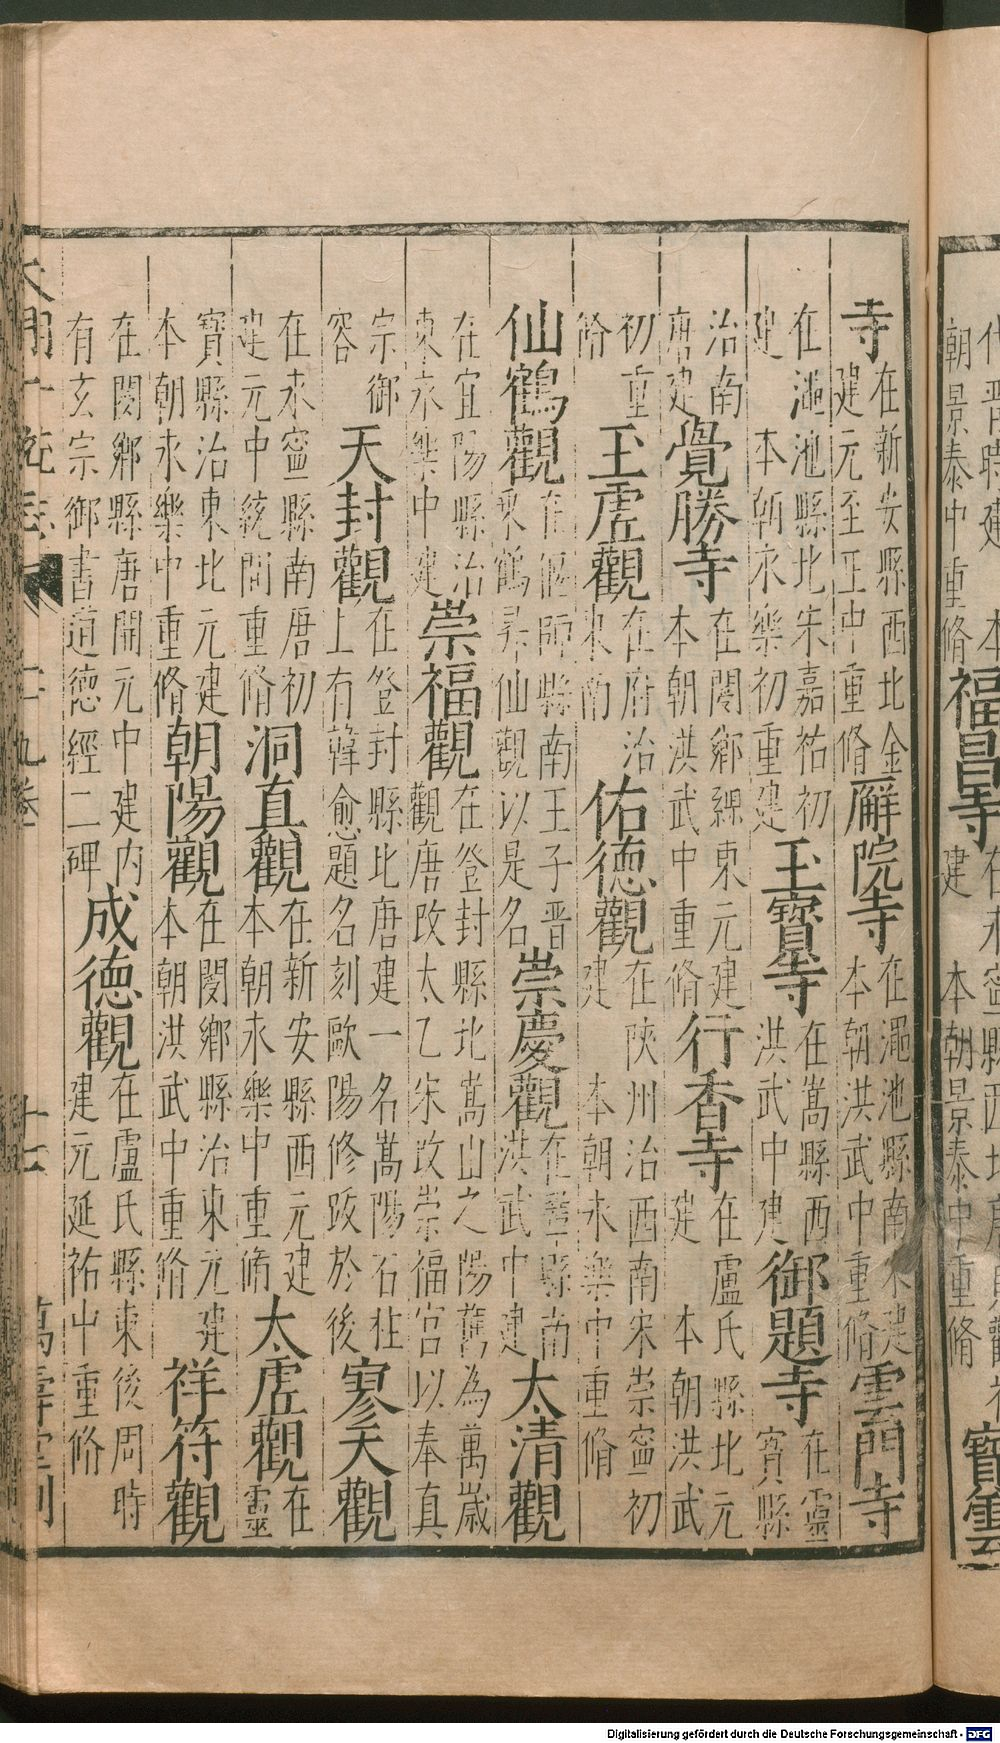 代晉時建 本朝景泰中重脩 福昌寺 在永寧縣西北唐貞觀初建 本朝景泰中重脩 寶雲
寺 在新安縣西北金建元至正中重脩 廨院寺 在澠池縣南宋建本朝洪武中重脩 雲門寺
在澠池縣北宋嘉祐初建 本朝永樂初重建 玉寶寺 在嵩縣西洪武中建 御題寺 在靈寶縣
治南唐建 覺勝寺 在閿鄉縣東元建本朝洪武中重脩 行香寺 在盧氏縣北元建 本朝洪武
初重脩 玉虛觀 在府治東南 佑德觀 在陝州治西南宋崇寧初建 本朝永樂中重脩
仙鶴觀 在偃師縣南王子晉乘鶴昇仙觀以是名 崇慶觀 在鞏縣南洪武中建 太清觀
在宜陽縣治東永樂中建 崇福觀 在登封縣北嵩山之陽舊為萬歲觀唐改太乙宋改崇福宮以奉真
宗御容 天封觀 在登封縣北唐建一名嵩陽石柱上有韓愈題名刻歐陽修跋於後 寥天觀
在永寧縣南唐初建元中統間重脩 洞真觀 在新安縣西元建本朝永樂中重脩 太虛觀 在靈
寶縣治東北元建本朝永樂中重脩 朝陽觀 在閿鄉縣治東元建本朝洪武中重脩 祥符觀
在閿鄉縣唐開元中建內有玄宗御書道德經二碑 成德觀 在盧氏縣東後周時建元延祐中重脩
大明一統志 二十九卷 十七 萬壽堂刊
Digitalisierung gefördert durch die Deutsche Forschungsgemeinschaft - DFG